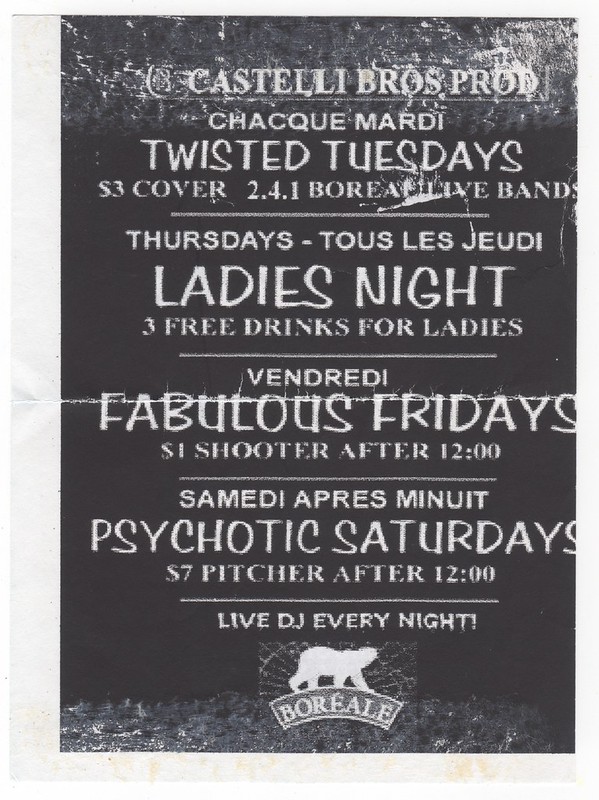 CASTELLI BROS PROD
CHACQUE MARDI
TWISTED TUESDAYS
$3 COVER 2.4.1 BOREAL LIVE BANDS
THURSDAYS - TOUS LES JEUDI
LADIES NIGHT
3 FREE DRINKS FOR LADIES
VENDREDI
FABULOUS FRIDAYS
$1 SHOOTER AFTER 12:00
SAMEDI APRES MINUIT
PSYCHOTIC SATURDAYS
$7 PITCHER AFTER 12:00
LIVE DJ EVERY NIGHT!
BORÉALE